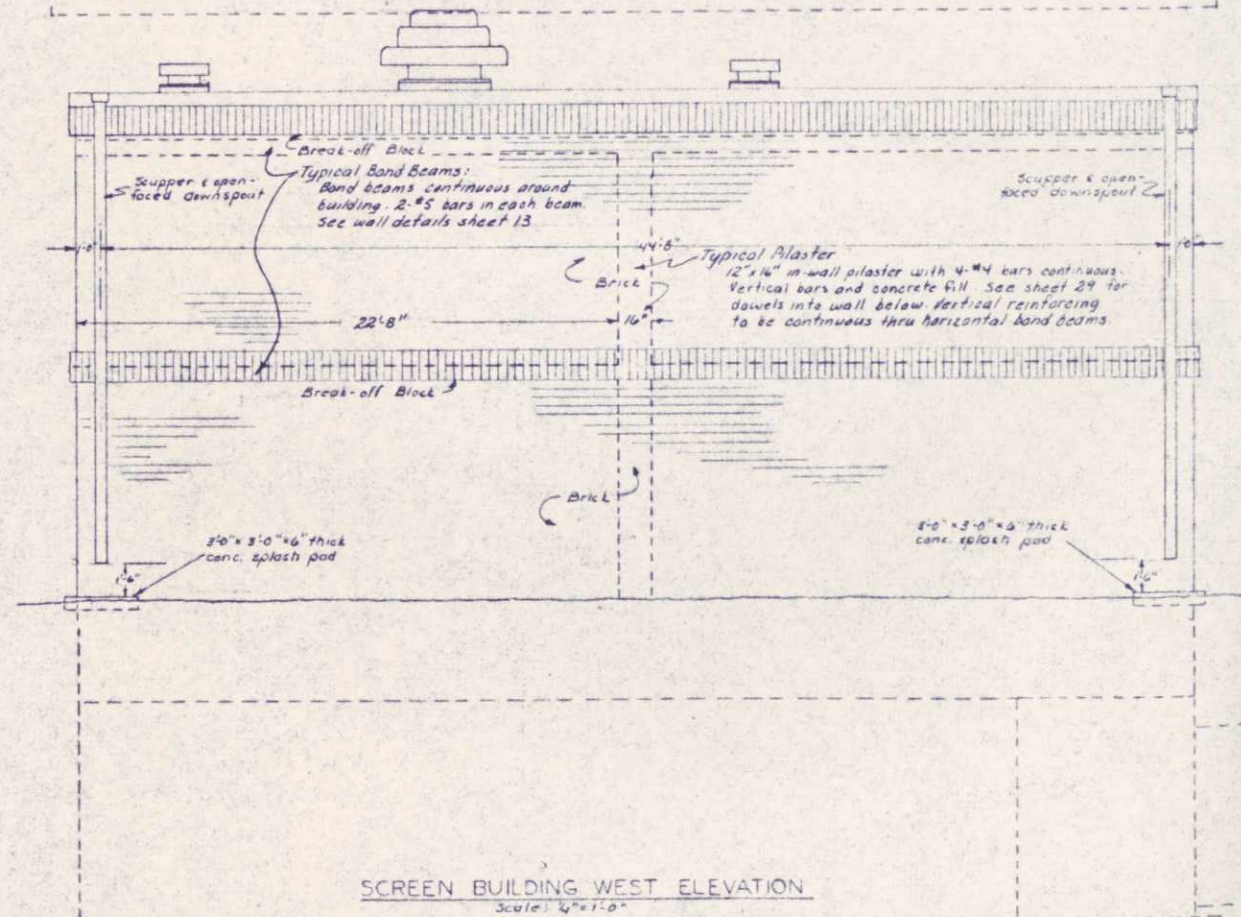 Break-off Block
Typical Bond Beams:
Bond beams continuous around
building. 2-#5 bars in each beam.
See wall details sheet 13
Scupper & open-
faced downspout
Scupper & open-
faced downspout
1'-0"
44'-8"
1'-0"
Typical Pilaster
12"x16" in-wall pilaster with 4-#4 bars continuous.
Vertical bars and concrete fill. See sheet 29 for
dowels into wall below. Vertical reinforcing
to be continuous thru horizontal bond beams.
Brick
22'-8"
16"
Break-off Block
Brick
3'-0" x 3'-0" x 6" thick
conc. splash pad
3'-0" x 3'-0" x 6" thick
conc. splash pad
1'-6"
1'-6"
SCREEN BUILDING WEST ELEVATION
Scale: 1/4"=1'-0"